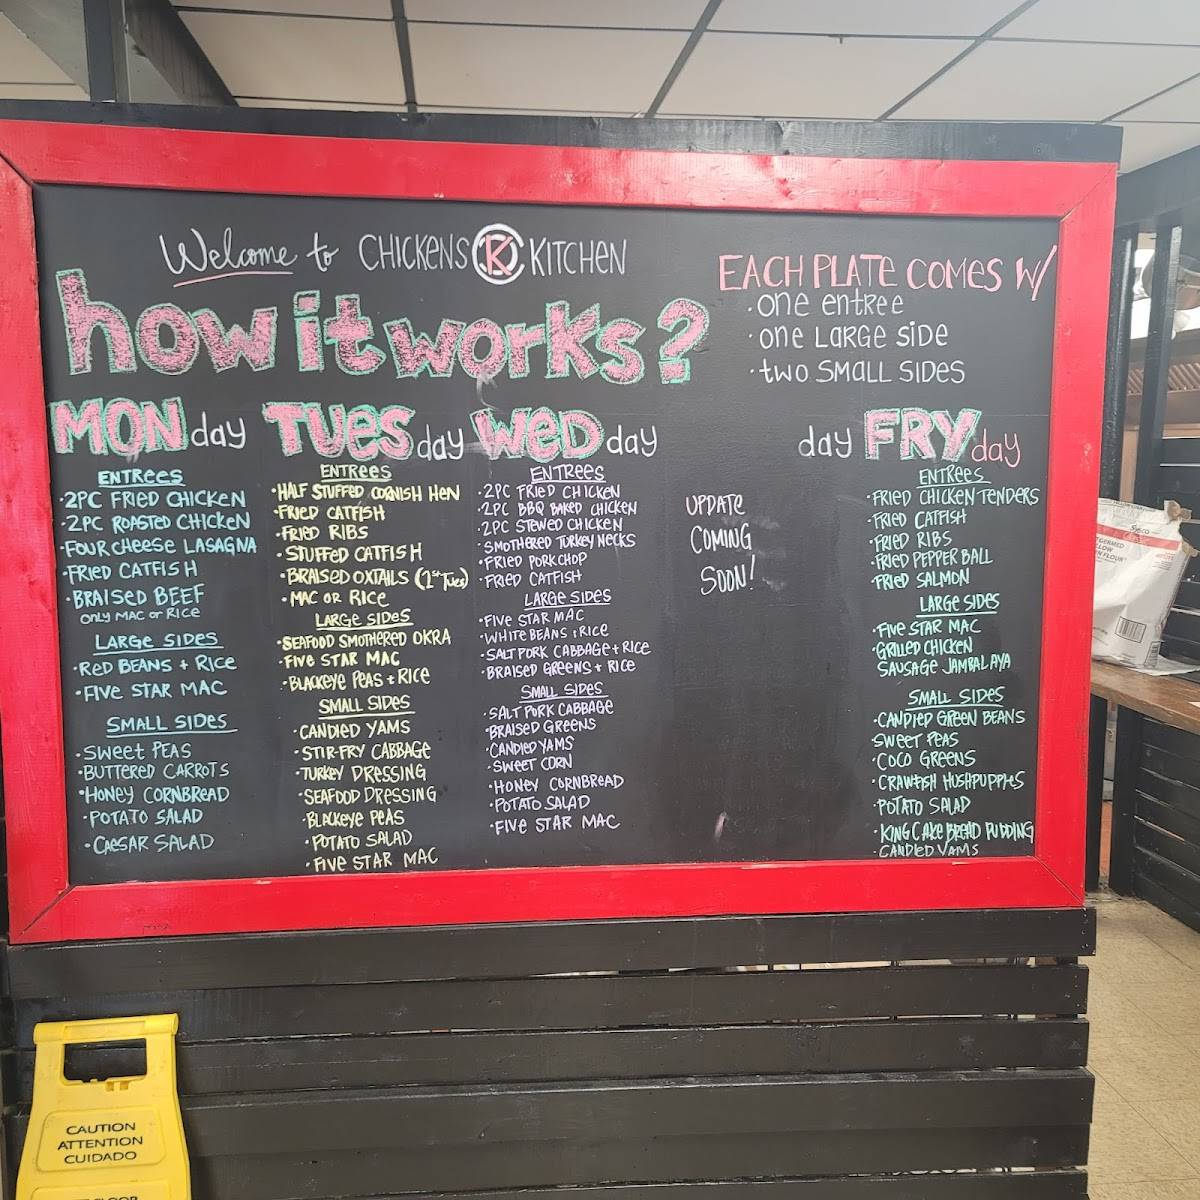 Welcome to CHICKENS CK KITCHEN
how it works?
EACH PLATE COMES W/
· one entree
· one LARGE SiDE
· two SMALL SiDES
MONday
ENTRees
· 2PC FRIED CHICKEN
· 2PC ROASTED CHICKEN
· FOUR CHEESE LASAGNA
· FRIED CATFISH
· BRAISED BEEF
ONLY MAC or RICE
LARGE SIDES
· RED BEANS + RICE
· FIVE STAR MAC
SMALL SIDES
· SWEET PEAS
· BUTTERED CARROTS
· HONEY CORNBREAD
· POTATO SALAD
· CAESAR SALAD
TUESday
ENTREES
· HALF STUFFED CORNISH HEN
· FRIED CATFISH
· FRIED RIBS
· STUFFED CATFISH
· BRAISED OXTAILS (1st Tues)
· MAC OR RICE
LARGE SIDES
· SEAFOOD SMOTHERED OKRA
· FIVE STAR MAC
· BLACKEYE PEAS + RICE
SMALL SIDES
· CANDIED YAMS
· STIR-FRY CABBAGE
· TURKEY DRESSING
· SEAFOOD DRESSING
· BLACKEYE PEAS
· POTATO SALAD
· FIVE STAR MAC
WEDday
ENTREES
· 2PC FRIED CHICKEN
· 2PC BBQ BAKED CHICKEN
· 2PC STEWED CHICKEN
· SMOTHERED TURKEY NECKS
· FRIED PORKCHOP
· FRIED CATFISH
LARGE SIDES
· FIVE STAR MAC
· WHITE BEANS + RICE
· SALT PORK CABBAGE + RICE
· BRAISED GREENS + RICE
SMALL SIDES
· SALT PORK CABBAGE
· BRAISED GREENS
· CANDIED YAMS
· SWEET CORN
· HONEY CORNBREAD
· POTATO SALAD
· FIVE STAR MAC
day
UPDATE
COMING
SOON!
FRYday
ENTREES
· FRIED CHICKEN TENDERS
· FRIED CATFISH
· FRIED RIBS
· FRIED PEPPER BALL
· FRIED SALMON
LARGE SIDES
· FIVE STAR MAC
· GRILLED CHICKEN
SAUSAGE JAMBALAYA
SMALL SIDES
· CANDIED GREEN BEANS
· SWEET PEAS
· COCO GREENS
· CRAWFISH HUSHPUPPIES
· POTATO SALAD
· KING CAKE BREAD PUDDING
· CANDIED YAMS
Sysco
CAUTION
ATTENTION
CUIDADO